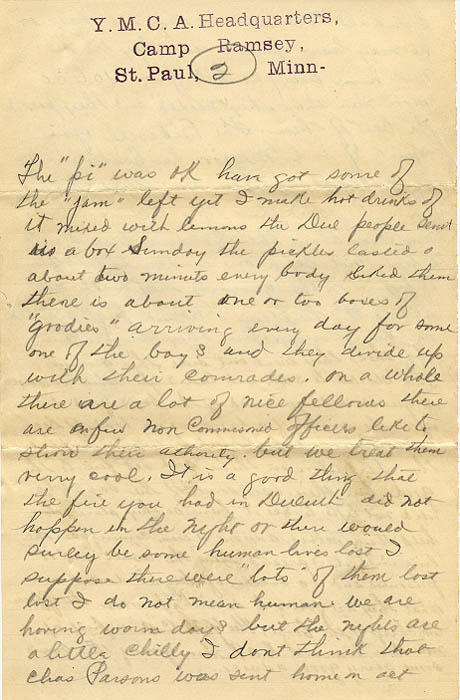 Y. M. C. A. Headquarters,
Camp Ramsey,
St. Paul, 2 Minn-
The "pi" was ok have got some of
the "jam" left yet I make hot drinks of
it mixed with lemons the Due people sent
us a box Sunday the pickles lasted
about two minuts every body liked them
there is about one or two boxes of
"Grodies" arriving every day for some
one of the boys and they divide up
with their comrades. on a whole
there are a lot of nice fellows there
are a few Non Commisoned officers like to
show their athority. but we treat them
verry cool. It is a good thing that
the fire you had in Duluth did not
hoppen in the night or there would
surley be some human lives lost I
suppose there were "lots" of them lost
lost I do not mean human we are
having warm days but the nights are
a little chilly I dont think that
Chas Parsons was sent home on act